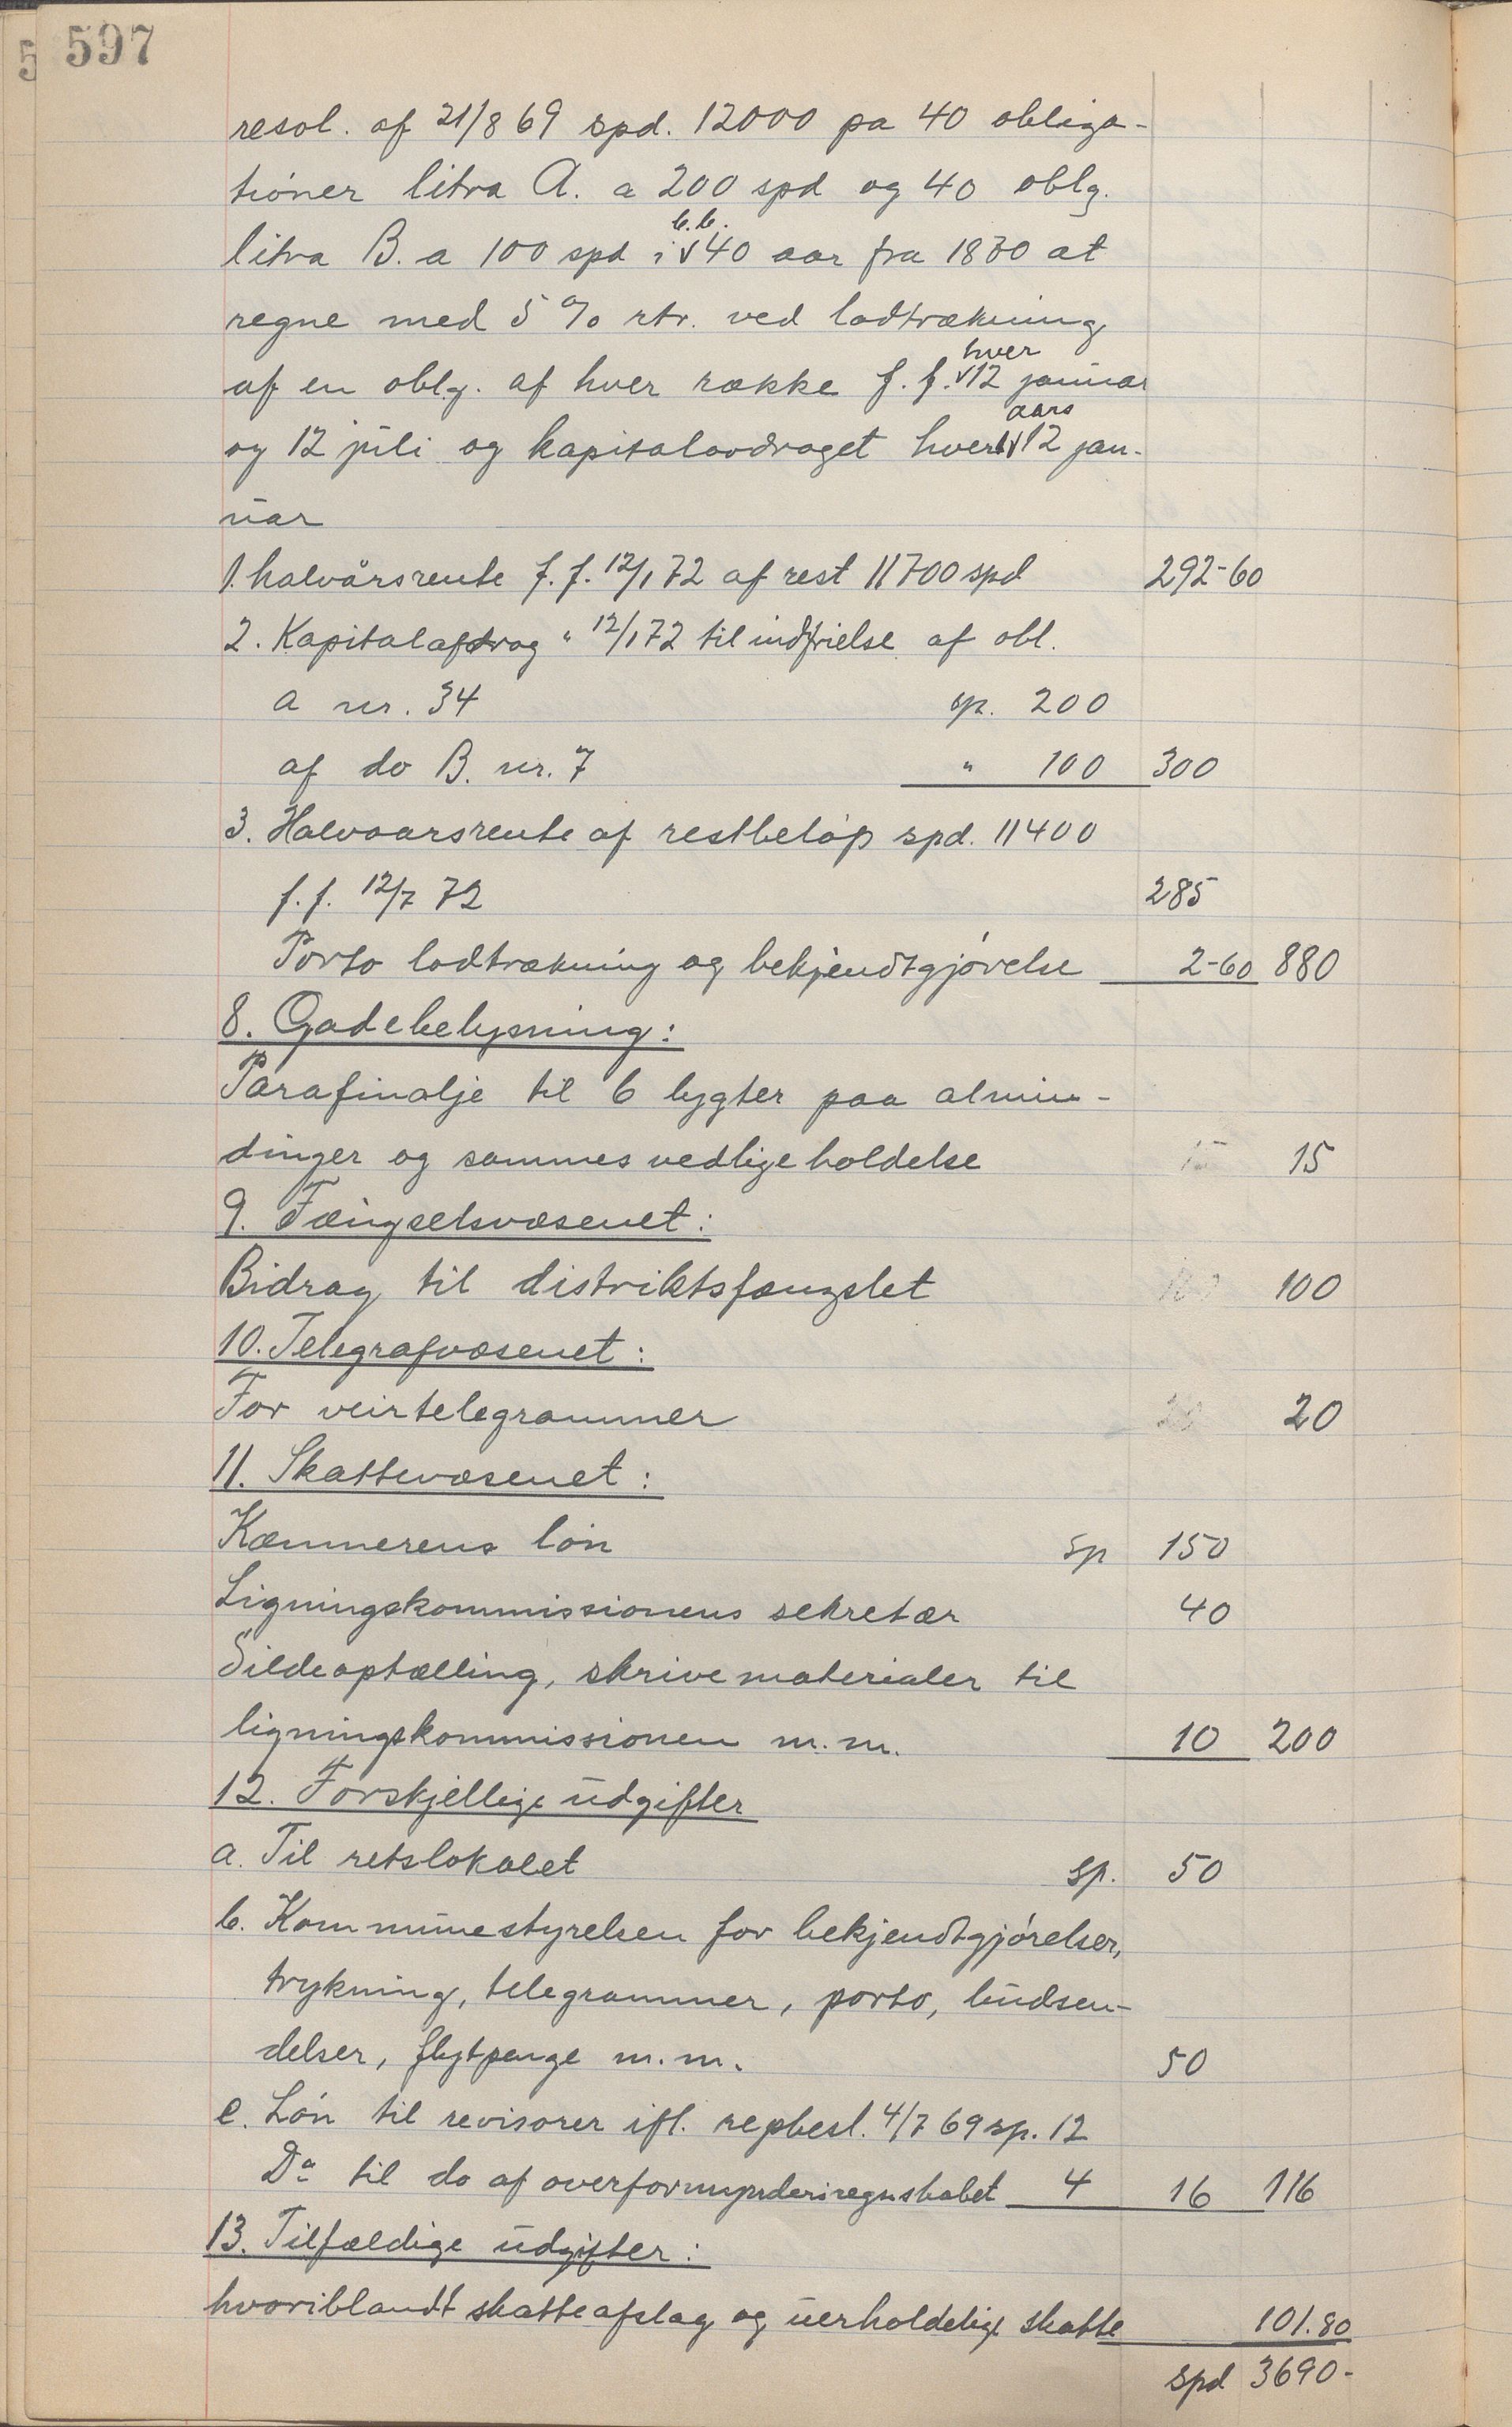 597
resol. af 21/8 69 spd. 12000 pa 40 obliga-
tioner litra A. a 200 spd og 40 oblg.
litra B. a 100 spd i b.b. 40 aar fra 1870 at
regne med 5 % rtr. ved lodtrækning
af en oblg. af hver række f. f. hver 12 januar
og 12 juli og kapitalavdraget hvert aars 12 jan-
uar
1. halvårsrente f. f. 12/1 72 af rest 11700 spd 292-60
2. Kapitalafdrag " 12/1 72 til indfrielse af obl.
a nr. 34 sp. 200
af do B. nr. 7 " 100 300
3. Halvaarsrente af restbeløp spd. 11400
f. f. 12/7 72 285
Porto lodtrækning og bekjendtgjørelse 2-60 880
8. Gadebelysning:
Parafinolje til 6 lygter paa almin-
dinger og sammes vedligeholdelse 15 15
9. Fængselsvæsenet:
Bidrag til distriktsfængslet 100 100
10. Telegrafvæsenet:
For veirtelegrammer 20 20
11. Skattevæsenet:
Kæmnerens løn sp 150
Ligningskommissionens sekretær 40
Sildeoptælling, skrivematerialer til
ligningskommissionen m.m. 10 200
12. Forskjellige udgifter
a. Til retslokalet sp. 50
b. Kommunestyrelsen for bekjendtgjørelser,
trykning, telegrammer, porto, budsen-
delser, flytpenge m.m. 50
c. Løn til revisorer ifl. repbesl. 4/7 69 sp. 12
Do til do af overformynderiregnskabet 4 16 116
13. Tilfældige udgifter:
hvoriblandt skatteafslag og uerholdelige skatte 101.80
spd 3690-